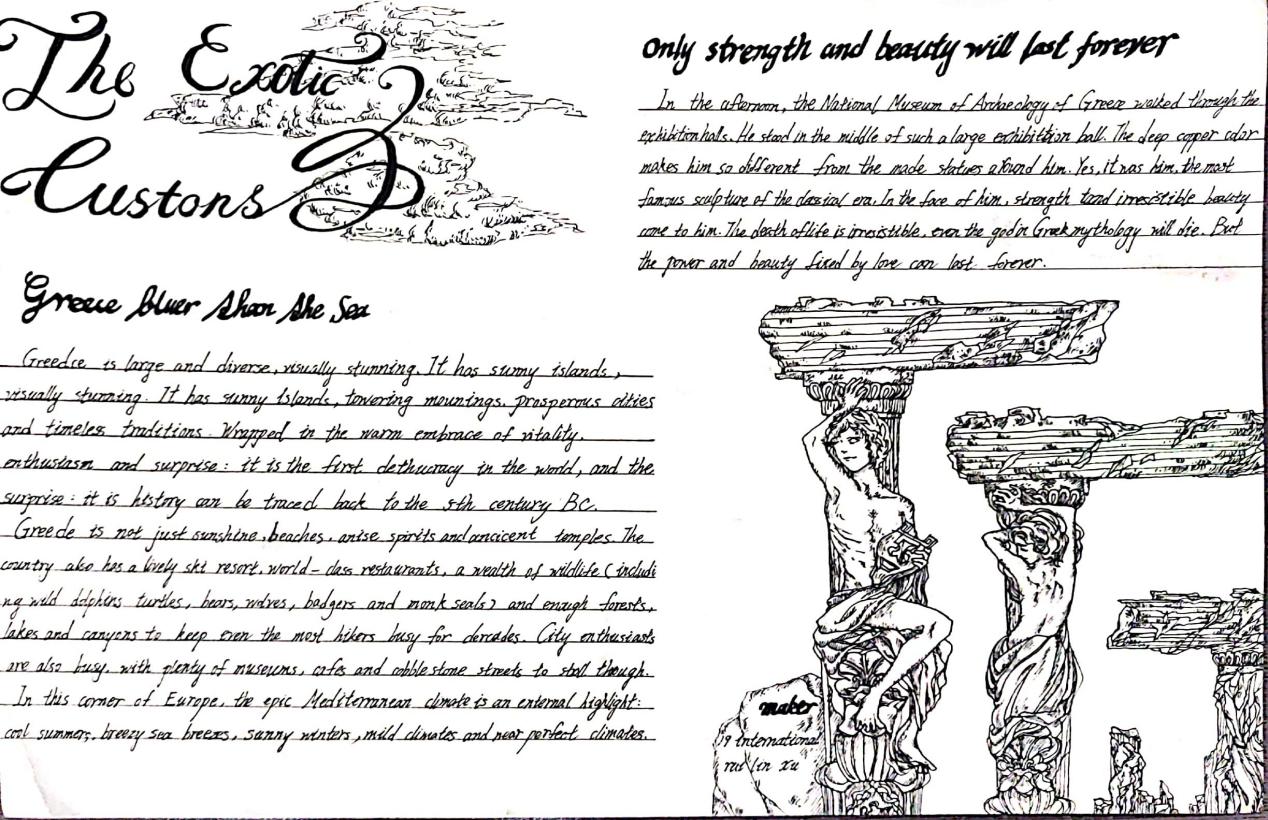 The Exotic
Custons
Greece bluer than the Sea
Greedce is large and diverse, visually stunning. It has sunny islands,
visually sturning. It has sunny islands, towering mountings, prosperous cities
and timeless traditions. Wrapped in the warm embrace of vitality.
enthusiasm and surprise: it is the first dethucracy in the world, and the
surprise: it is history can be traced back to the 5th century BC.
Greede is not just sunshine, beaches, anise spirits and ancicent temples. The
country also has a lively ski resort, world-class restaurants, a wealth of wildlife (includi
ng wild dolphins turtles, bears, wolves, badgers and monk seals) and enough forests,
lakes and canyons to keep even the most hikers busy for dercades. City enthusiasts
are also busy, with plenty of museums, cafes and cobble stone streets to stoll though.
In this corner of Europe, the epic Mediterranean climate is an enternal highlight:
cool summers, breezy sea breezes, sunny winters, mild climates and near perfect climates.
Only strength and beauty will last forever
In the afternoon, the National Museum of Archaeology of Greece walked through the
exhibition halls. He stood in the middle of such a large exhibition hall. The deep copper color
makes him so different from the made statues around him. Yes, it was him, the most
famous sculpture of the classical era. In the face of him, strength and irresistible beauty
come to him. The death of life is irresistible, even the god in Greek mythology will die. But
the power and beauty fixed by love can last forever.
maker
19 international
rui lin xu